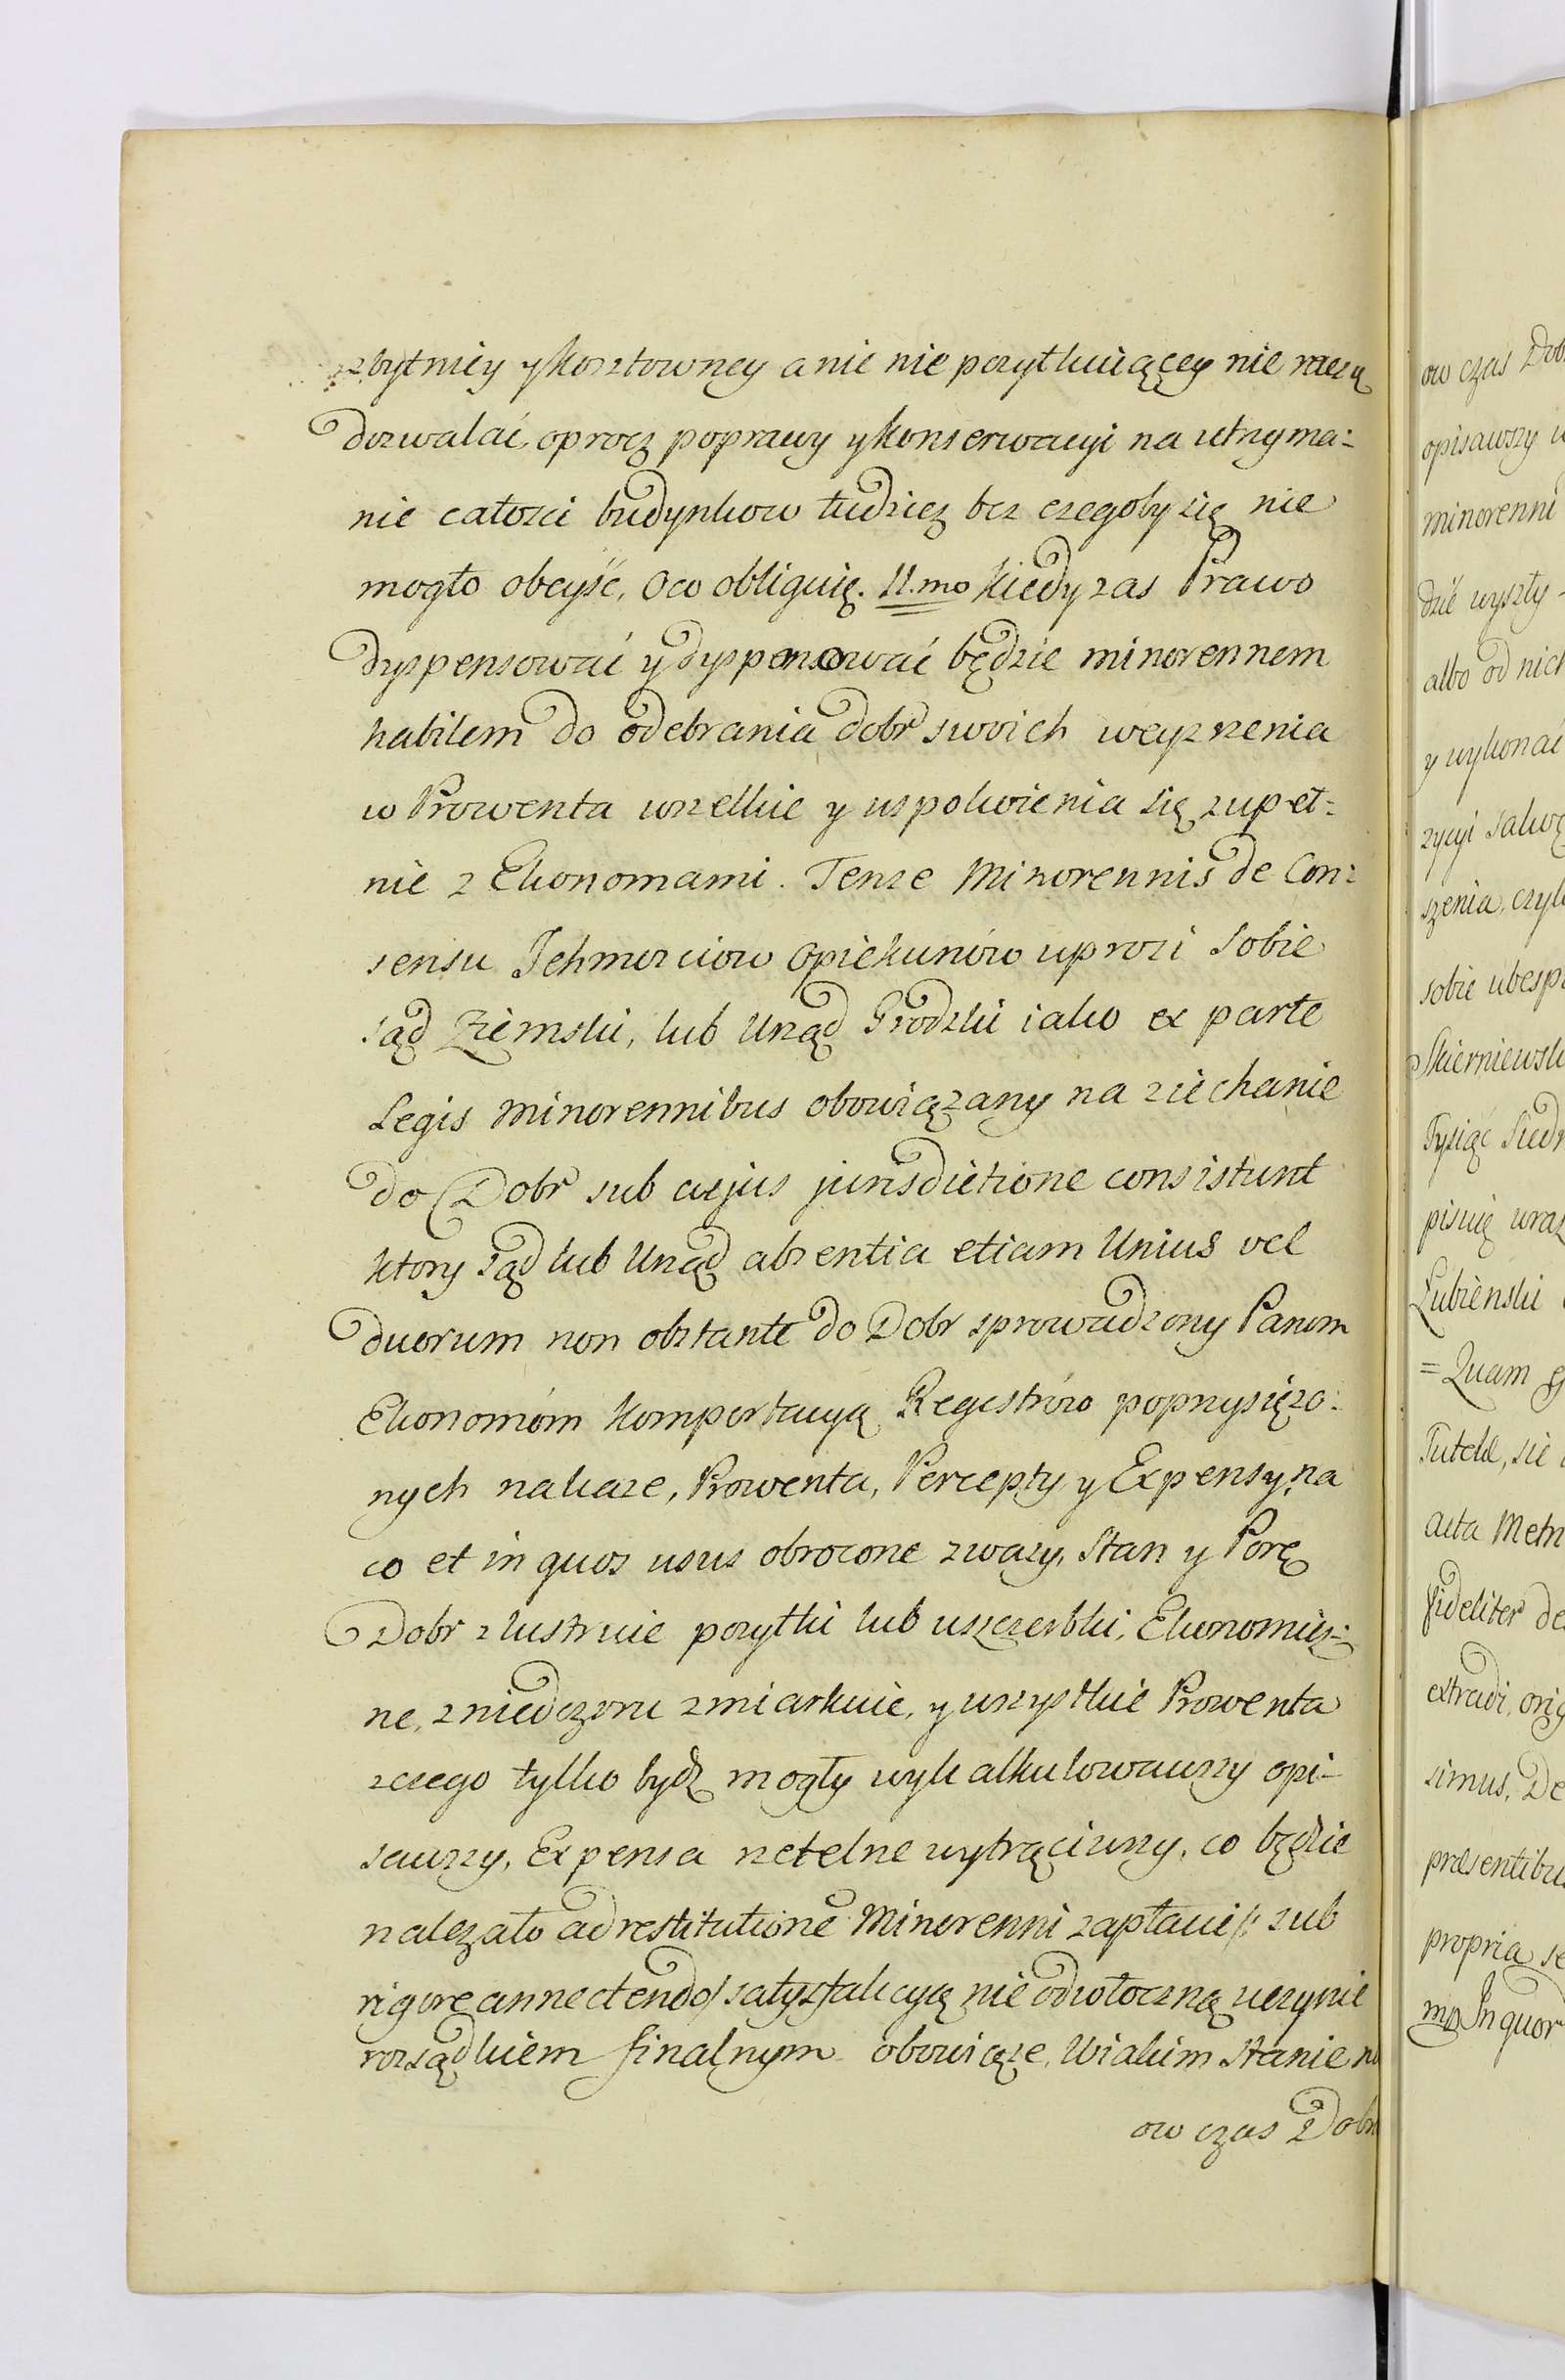 zbytniey y kosztowney a nic nie pozytkuiącey nie raczą
dozwalać, oprocz poprawy y konserwacyi na utrzyma=
nie całości budynkow tudziesz bez czegoby się nie
mogło obeyść, oco obliguię. 11.mo Kiedy zas Prawo
dyspensować y dyspensować będzie minorennem
habilem do odebrania dobr swoich weyrzenia
w Prowenta wszelkie y uspokoienia się zupeł=
nie z Ekonomami. Tenze Minorennis de Con=
sensu Jchmosciow Opiekunów uprosi sobie
sąd Ziemski, lub Urząd Grodzki iako ex parte
Legis minorennibus obowiązany na ziechanie
do Dobr sub cujus jurisdictione consistunt
ktory sąd lub Urząd absentia etiam Unius vel
duorum non obstante do Dobr sprowadzony Panom
Ekonomóm komportacyą Regestrów poprzysięzo=
nych nakaze, Prowenta, Percepty y Expensy, na
co et in quos usus obrocone zwazy, Stan y Porę
Dobr zlustruie pozytki lub uszczerbki, Ekonomicz=
ne, z niedozoru zmiarkuie, y wszystkie Prowenta
zczego tylko bydz mogły wykalkulowawszy opi=
sawszy, Expensa rzetelne wytrąciwszy, co będzie
nalezało ad restitutionē Minorenni zapłacić /: sub
rigore annectendo :/ satysfakcyą nieodwłoczną uczynić
rozsądkiem finalnym obowiąze, Wiakim Stanie na
ow czas Dobr
ow czas Dob
opisawszy
minorenni
dzie wyszły
albo od nich
y wykonać
zycyi salwę
szenia, czyli
sobie ubesp
Skierniewsk
Tysiąc Siedm
pisuię wraz
Łubienski
= Quam
Tutelæ, sic
acta Metr
fideliter de
extradi, orig
simus, De
præsentibus
propria se
mp In quor